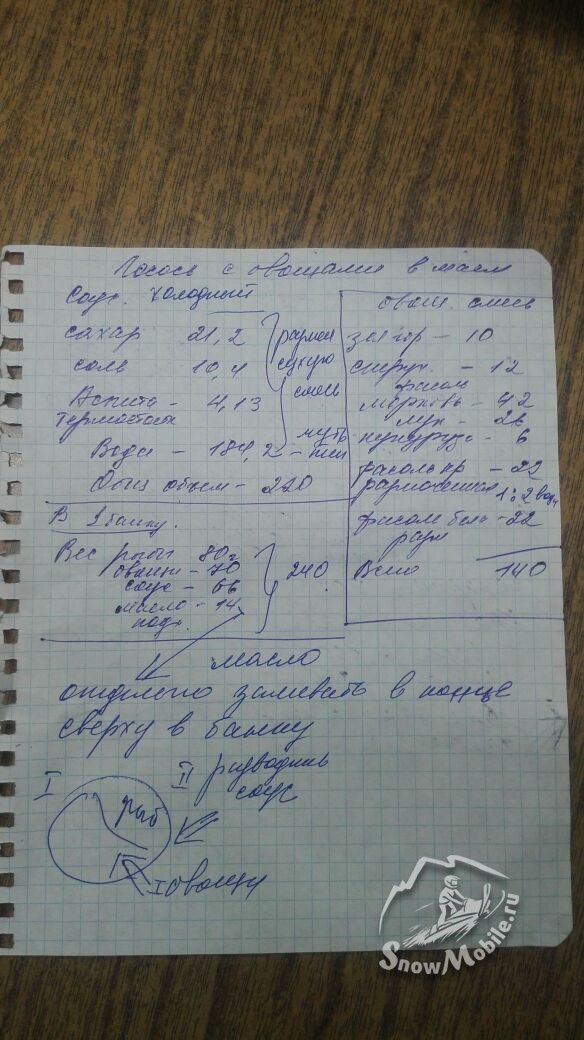 Лосось с овощами в масле
Соус. холодный
сахар 21,2
соль 10,4
сухую
смесь
Термостаб
4,13
Вода - 184,2 - тёпл
Общ объём - 220
В 1 банку.
Вес рыбы 80г
овощи - 70
соус - 66
масло - 14
240
овощ. смесь
зел гор - 10
струч. - 12
фасоль
морковь - 42
лук - 26
кукуруза - 6
фасоль кр - 22
размоченная 1:2 вод
фасоль бел - 22
разм
Всего 140
масло
отдельно заливать в конце
сверху в банку
I
рыб
II
соус
овощи
SnowMobile.ru